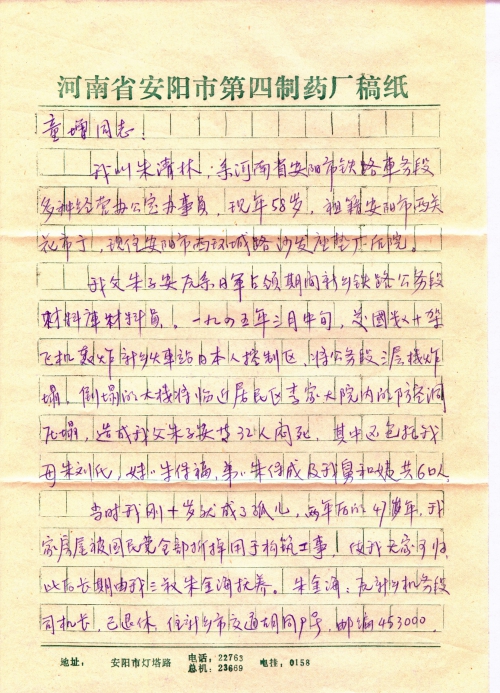 河南省安阳市第四制药厂稿纸
童增同志:
我叫朱清林,系河南省安阳市铁路車务段
多种经营办公室办事员,现年58岁,祖籍安阳市西关
花市街,现住安阳市西环城路沙发座垫厂后院。
我父朱子安原系日军占领期间新乡铁路公务段
材料库材料员。一九四五年三月中旬,美國数十架
飞机轰炸新乡火車站日本人控制区,将公务段三层楼炸
塌,倒塌的大楼将临近居民区李家大院内的防空洞
压塌,造成我父朱子安等32人闷死,其中还包括我
母朱刘氏,妹朱保福,弟朱保成及我舅和姨共6口人。
当时我刚十岁就成了孤儿,两年后的47岁年,我
家房屋被国民党全部拆掉用于构筑工事,使我无家可归,
此后长期由我三叔朱金海扶养。朱金海:原新乡机务段
司机长,已退休,住新乡市交通胡同9号,邮编453000.
地址: 安阳市灯塔路 电话:22763 总机:23669 电挂:0158